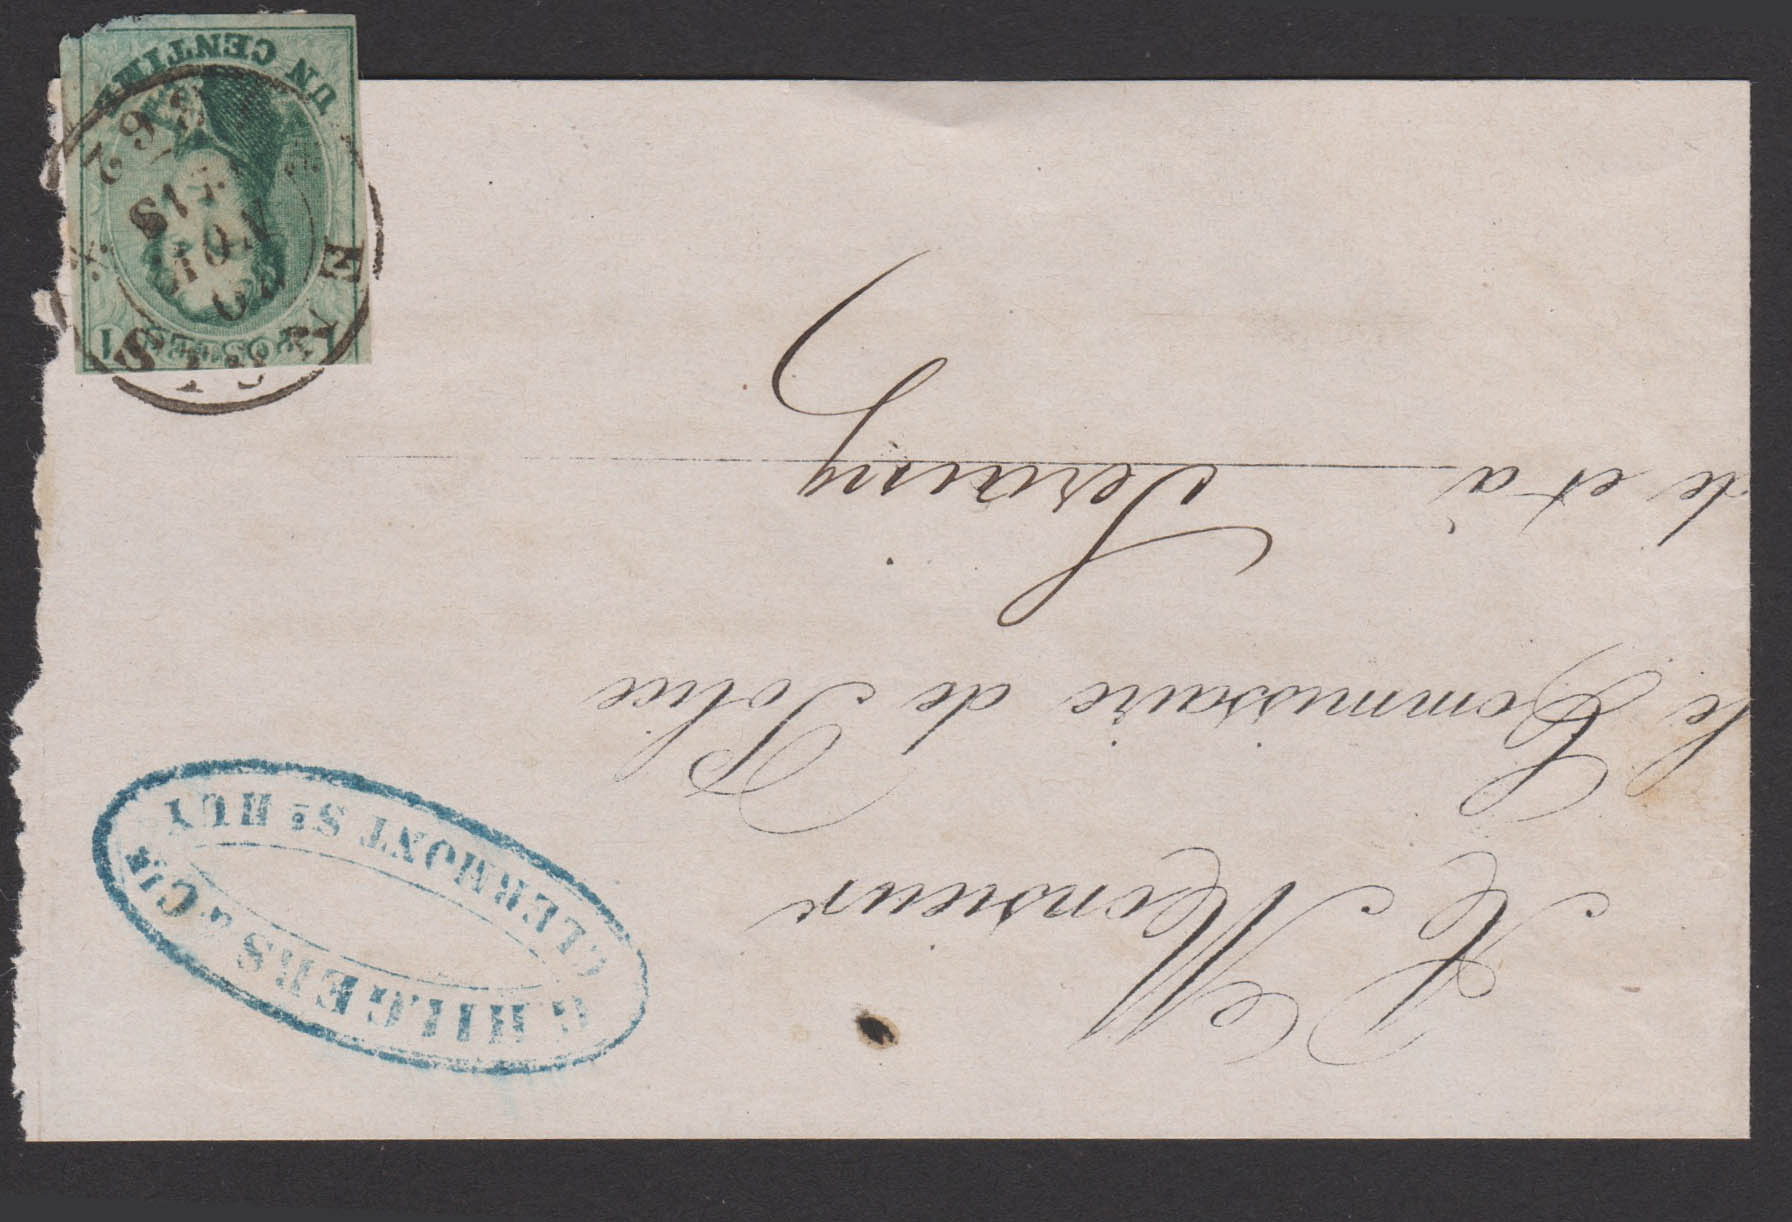 A Monsieur
le Commissaire de Police
de et à Seraing
HILGERS & Cie
CLERMONT Sr HUY
UN CENTIME
POSTES
1 1
NOV
18 62